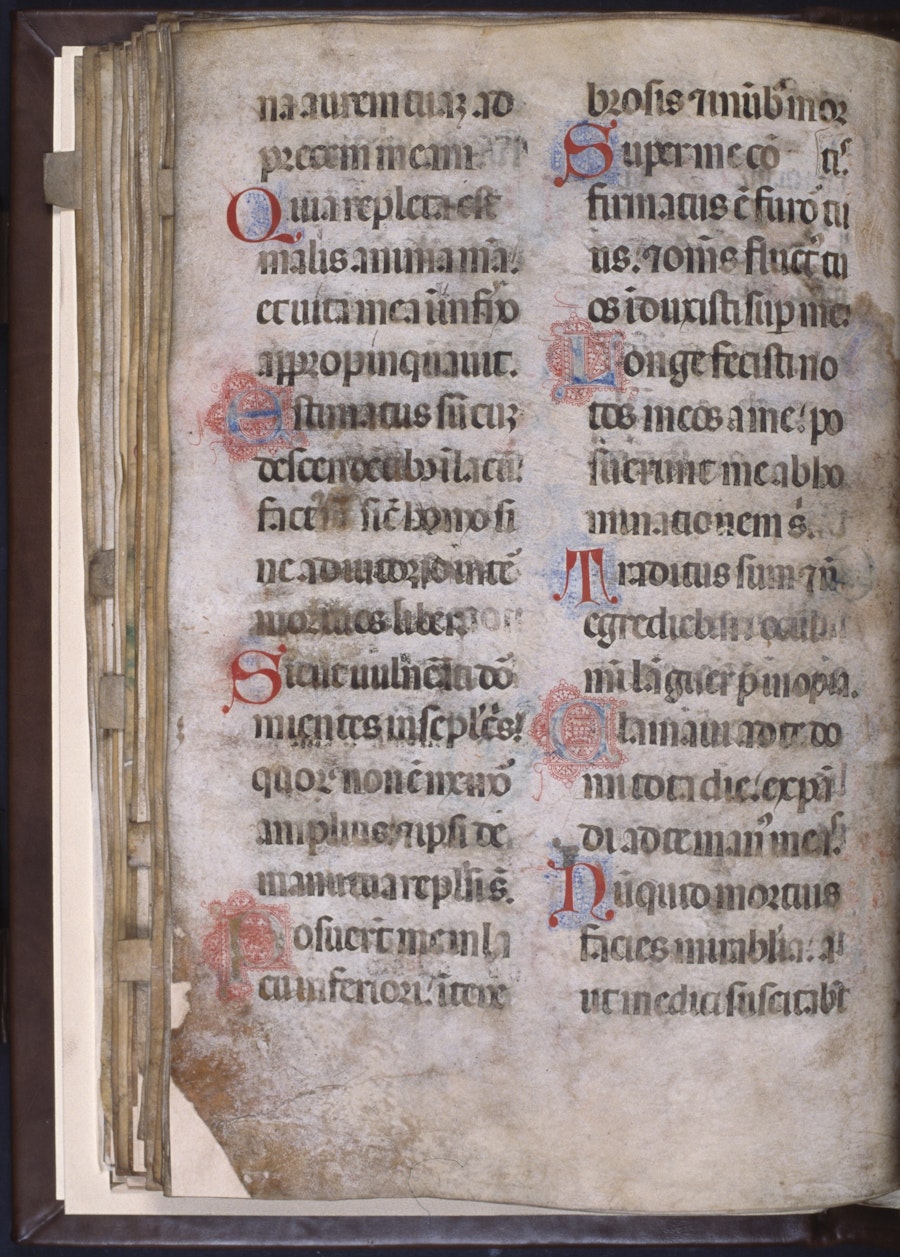 na aurem tuaz ad
precem meam
Quia repleta est
malis anima mā:
et uita mea ī infr̄o
appropinquauit.
Estimatus sū cuz
descendētibꝰ ī lacū:
fact sic̄ homo si
ne adiutorio inte
mortuos liber.
Sicut uulnerati do
mientes in sepl'cs:
quor̄ non ē memor̄
amplius: ⁊ ipsi de
manu tua replsi s̄.
Posuer̄t me in la
cu inferiori: ī tene
brosis ⁊ inūb̄ mor
tis.
Super me cō
firmatus ē furor tu
us: ⁊ om̄s fluctu
os īduxisti sup me.
Longe fecisti no
tos meos a me: po
suerunt me abho
minationem s̄.
Traditus sum ⁊ n̄
egrediebar oculi
mī lāguer̄ p inopia.
Clamaui ad te do
mi tota die: expā
di ad te man⁹ meas.
Nūquid mortuis
facies mirabilia: a
ut medici suscitabt